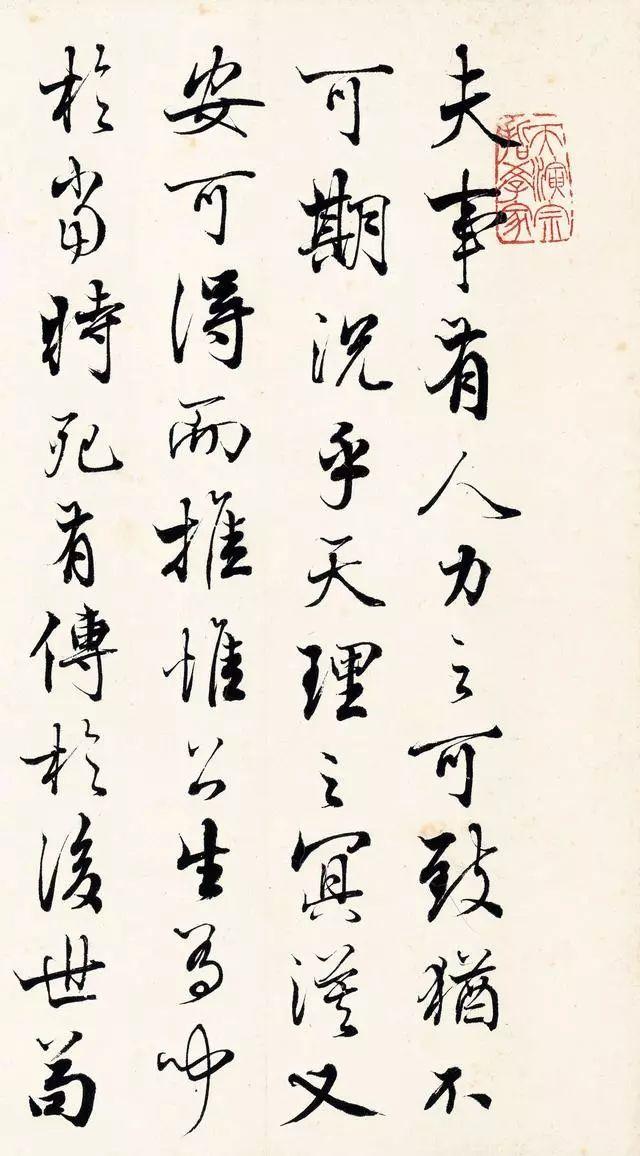 夫事有人力之可致猶不
可期況乎天理之冥漠又
安可得而推惟公生有聞
於當時死有傳於後世苟
天演宗
哲學家